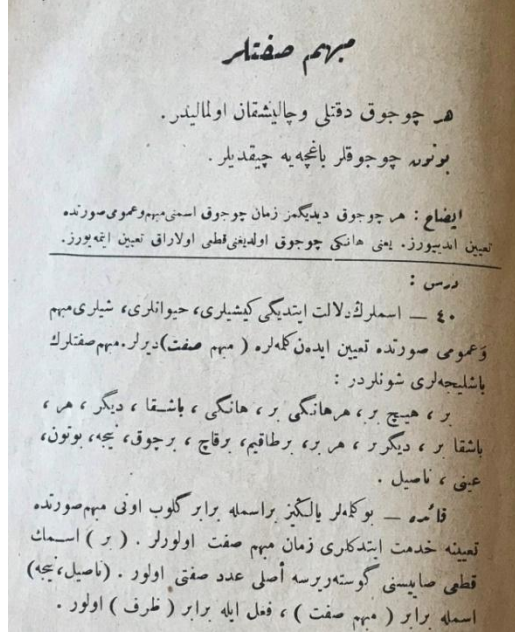 مبهم صفتلر
هر چوجوق دقتلی وچالیشقان اولمالیدر .
بوتون چوجوقلر باغچه‌یه چیقدیلر .
ایضاح : هر چوجوق دیدیگمز زمان چوجوق اسمنی مبهم وعمومی صورتده
تعیین ایدییورز . یعنی هانکی چوجوق اولدیغنی قطعی اولاراق تعیین ایتمه‌یورز .
درس :
٤٠ — اسملرڭ دلالت ایتدیگی کیشیلری، حیوانلری، شیلری مبهم
وعمومی صورتده تعیین ایده‌ن کله‌لره ( مبهم صفت ) دیرلر . مبهم صفتلرك
باشلیجه‌لری شونلردر :
بر ، هیچ بر ، هرهانگی بر ، هانگی ، باشقا ، دیگر ، هر ،
باشقا بر ، دیگر بر ، هر بر، برطاقیم، برقاچ ، برچوق، نیجه، بوتون،
عینی ، ناصیل .
قائده — بوکله‌لر یالڭیز براسمله برابر گلوب اونی مبهم صورتده
تعیینه خدمت ایتدکلری زمان مبهم صفت اولورلر . ( بر ) اسمك
قطعی صاییسنی گوسته‌ریرسه أصلی عدد صفتی اولور . (ناصیل، نیجه)
اسمله برابر ( مبهم صفت ) ، فعل ایله برابر ( ظرف ) اولور .